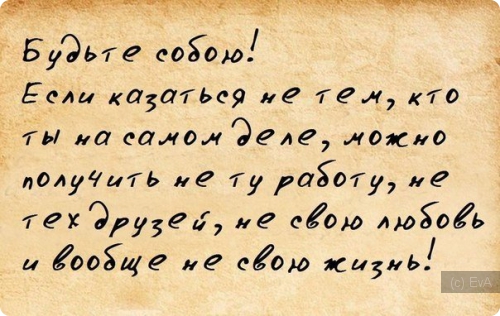 Будьте собою!
Если казаться не тем, кто
ты на самом деле, можно
получить не ту работу, не
тех друзей, не свою любовь
и вообще не свою жизнь!
(c) EvA